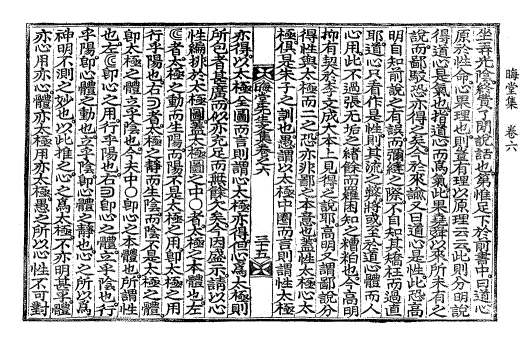 晦堂集 卷六
坐再光陰終費了閒說話也第惟足下於前書中曰道心
原於性命心果理也則豈有理以原理云云此則分明說
得道心是氣也指道心而爲氣此果堯舜以來所未有之
說而鄙駁恐亦得之矣今於來諭又曰道心是性此恐高
明自知前說之有誤而彌縫之際不自知其矯枉而過直
耶道心只看作是性則其流之弊將或至於道心體而人
心用此不過張無垢之緖餘而羅困知之糟粕也今高明
抑有契於李文成大本上見得之說耶高明又謂鄙說分
得性與太極而二之恐亦非鄙之本意也蓋性太極心太
極俱是朱子之訓也愚謂以太極中圈而言則謂性太極
晦堂先生文集卷之六 三十五
亦得以太極全圖而言則謂心太極亦得但心爲太極則
所包者甚廣而似亦充足無餘欠矣今因盛示請以心
性編排於太極圖蓋太極圖之中○者太極之本體也左
☾者太極之動而生陽而陽不是太極之用卽太極之用
行乎陽也右☽者太極之靜而生陰而陰不是太極之體
卽太極之體立乎陰也今夫中○卽心之本體也所謂性
也左☾卽心之用行乎陽也右☽卽心之體立乎陰也行
乎陽卽心體之動也立乎陰卽心體之靜也心之所以爲
神明不測之妙也以此推之心之爲太極不亦明甚乎體
亦心用亦心體亦太極用亦太極愚之所以心性不可對